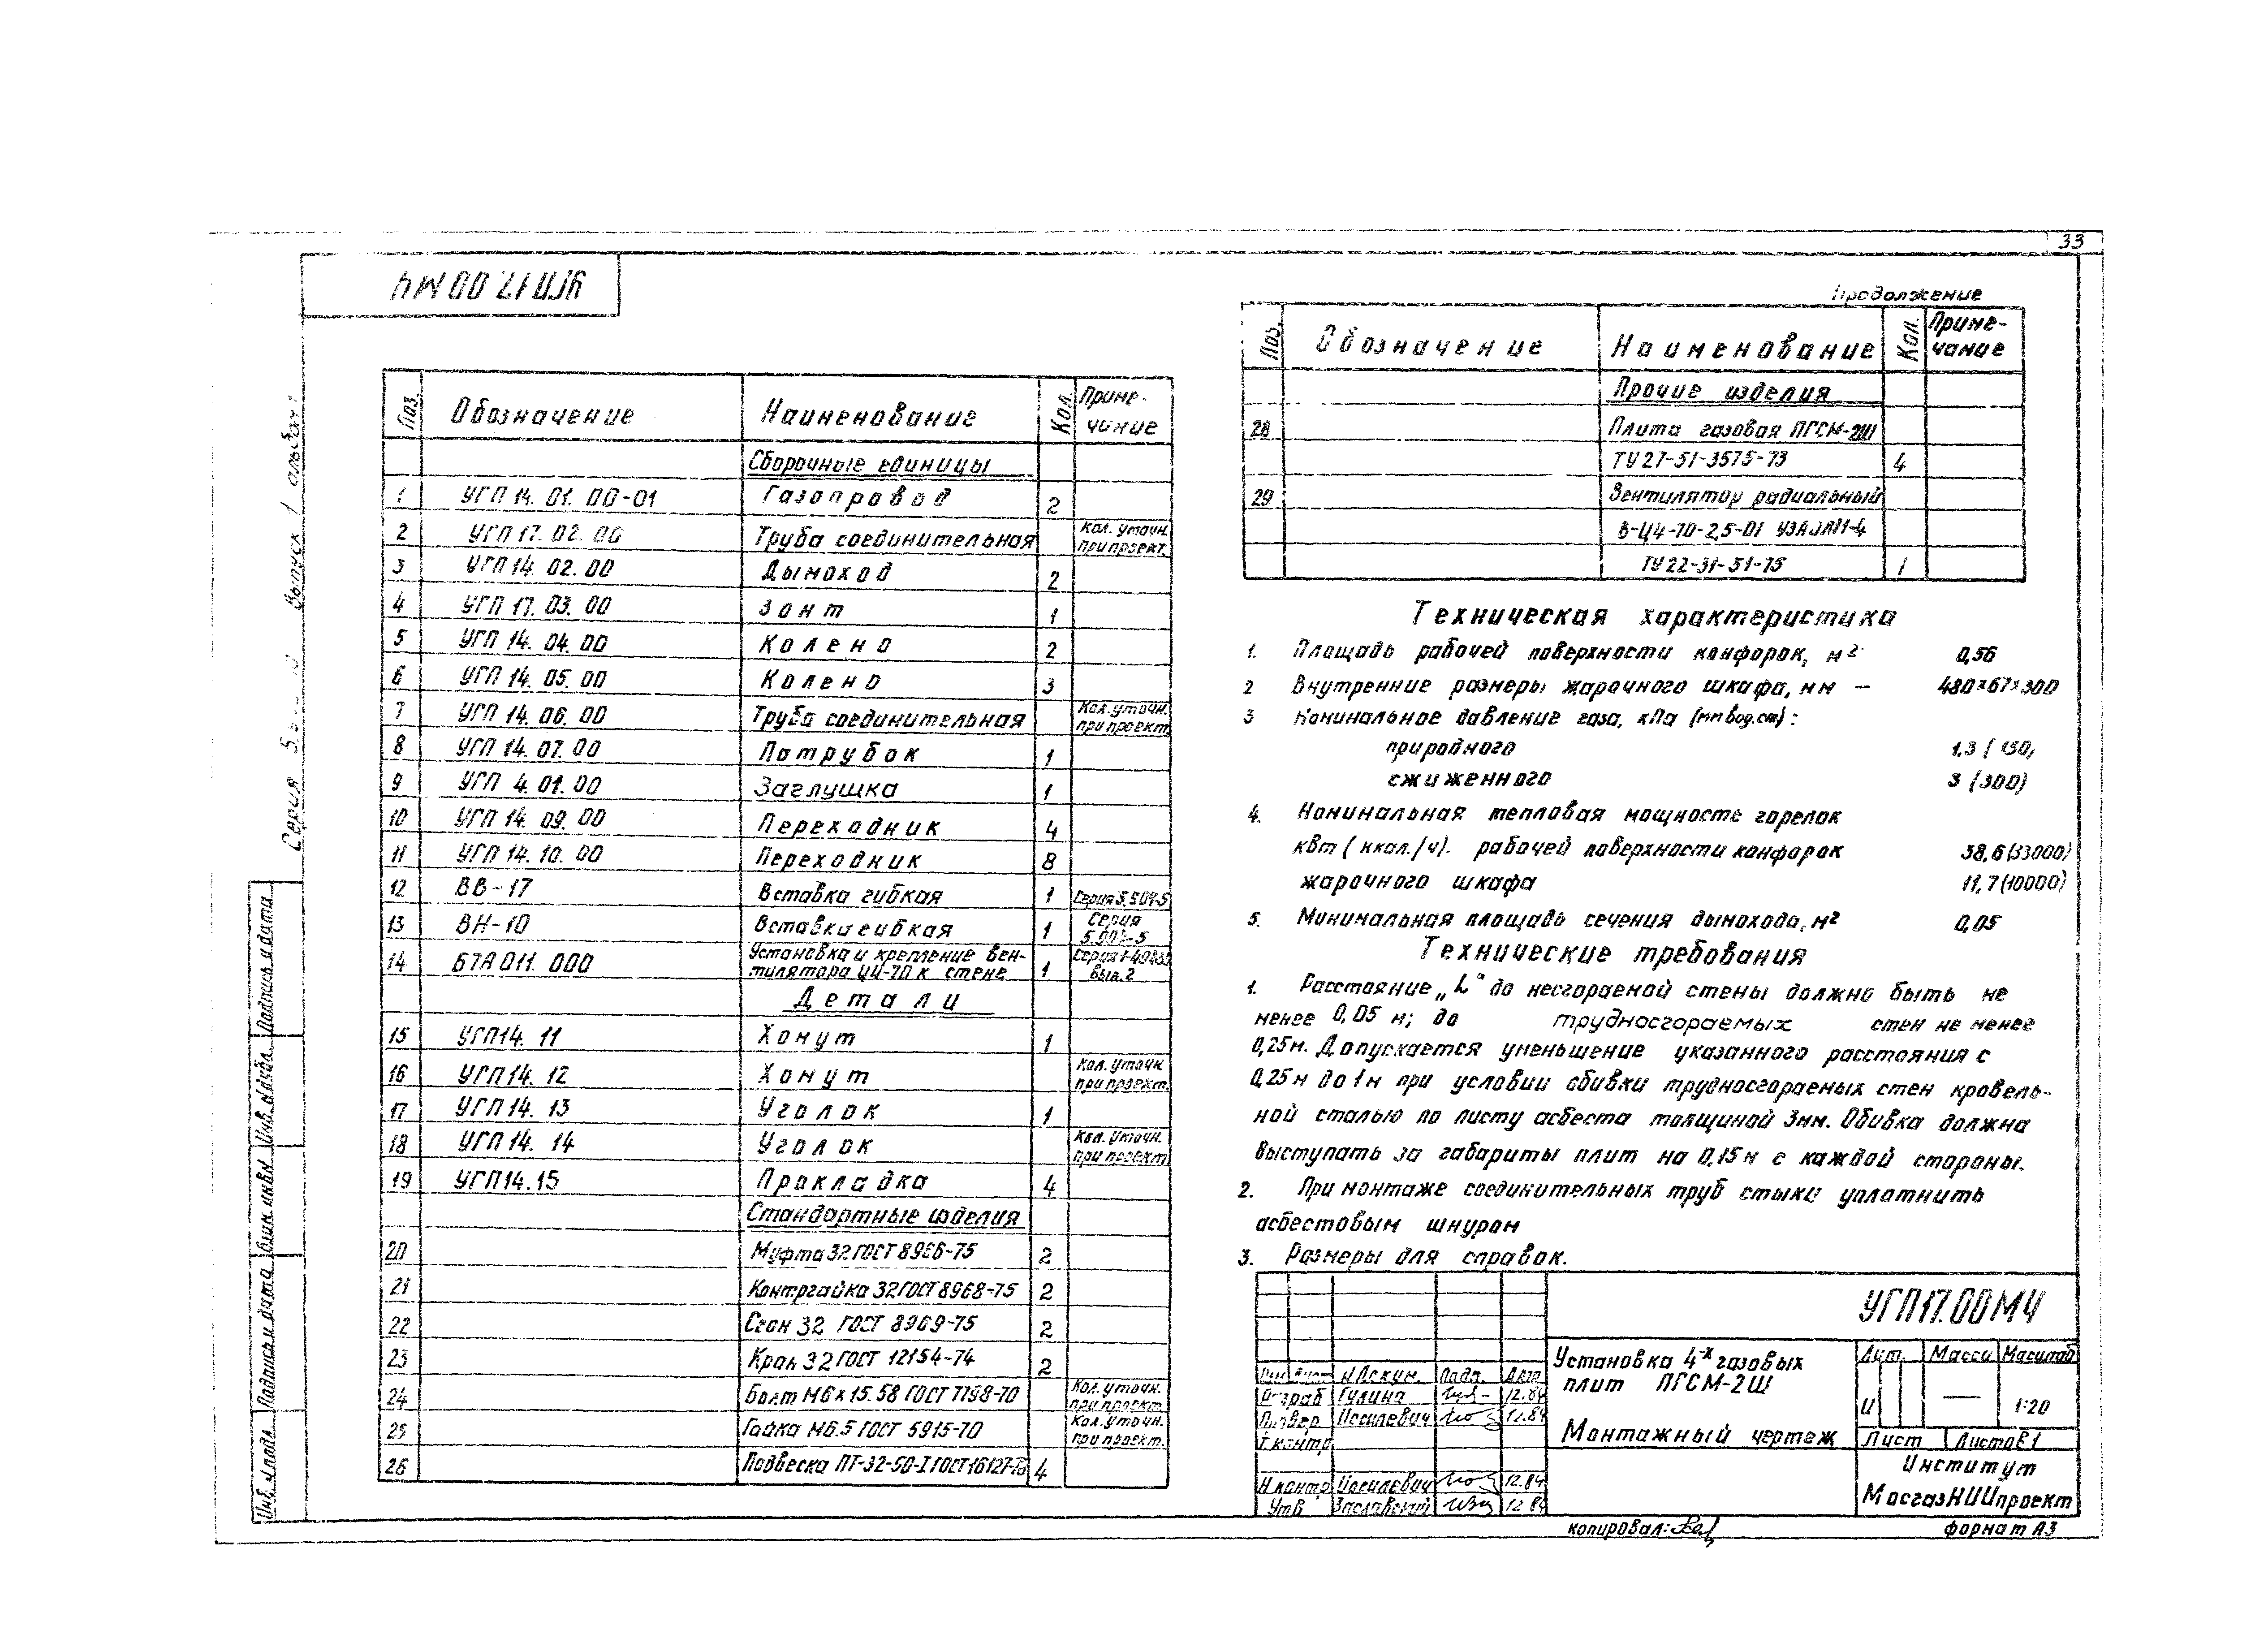 33
УГП 17.00 МЧ
выпуск 1 альбом 1
Серия
Поз. Обозначение Наименование Кол. Приме-
чание
Сборочные единицы
1 УГП 14. 01. 00-01 Газопровод 2
2 УГП 17. 02. 00 Труба соединительная Кол. уточн.
при проект.
3 УГП 14. 02. 00 Дымоход 2
4 УГП 17. 03. 00 Зонт 1
5 УГП 14. 04. 00 Колено 2
6 УГП 14. 05. 00 Колено 3
7 УГП 14. 06. 00 Труба соединительная Кол. уточн.
при проект.
8 УГП 14. 07. 00 Патрубок 1
9 УГП 4. 01. 00 Заглушка 1
10 УГП 14. 09. 00 Переходник 4
11 УГП 14. 10. 00 Переходник 8
12 ВВ-17 Вставка гибкая 1 Серия
13 ВН-10 Вставка гибкая 1 Серия
14 Б7А 011. 000 Установка и крепление вен-
тилятора Ц4-70 к стене 1 Серия
вып. 2
Детали
15 УГП14. 11 Хомут 1
16 УГП14. 12 Хомут Кол. уточн.
при проект.
17 УГП 14. 13 Уголок 1
18 УГП 14. 14 Уголок Кол. уточн.
при проект.
19 УГП14.15 Прокладка 4
Стандартные изделия
20 Муфта 32 ГОСТ 8966-75 2
21 Контргайка 32 ГОСТ 8968-75 2
22 Сгон 32 ГОСТ 8969-75 2
23 Кран 32 ГОСТ 12154-74 2
24 Болт М6 х 15. 58 ГОСТ 7798-70 Кол. уточн.
при проект.
25 Гайка М6.5 ГОСТ 5915-70 Кол. уточн.
при проект.
26 Подвеска ПТ-32-50-I ГОСТ 16127-70 4
Продолжение
Поз. Обозначение Наименование Кол. Приме-
чание
Прочие изделия
28 Плита газовая ПГСМ-2Ш
ТУ 27-51-3575-73 4
29 Вентилятор радиальный
В-Ц4-70-2,5-01
ТУ 22-31-51-75 1
Техническая характеристика
1. Площадь рабочей поверхности конфорок, м² 0,56
2 Внутренние размеры жарочного шкафа, мм – 480×67×300
3 Номинальное давление газа, кПа (мм вод.ст):
природного 1,3 (130)
сжиженного 3 (300)
4. Номинальная тепловая мощность горелок
квт (ккал./ч). рабочей поверхности конфорок 38,6 (33000)
жарочного шкафа 11,7 (10000)
5. Минимальная площадь сечения дымохода, м² 0,05
Технические требования
1. Расстояние „L" до несгораемой стены должно быть не
менее 0,05 м; до трудносгораемых стен не менее
0,25м. Допускается уменьшение указанного расстояния с
0,25 м до 1м при условии обивки трудносгораемых стен кровель-
ной сталью по листу асбеста толщиной 3мм. Обивка должна
выступать за габариты плит на 0,15 м с каждой стороны.
2. При монтаже соединительных труб стыки уплатнить
асбестовым шнуром
3. Размеры для справок.
УГП17.00МЧ
Изм Лист № докум. Подп. Дата
Разраб Гулина 12.84
Провер Иосилевич 12.84
Т. контр
Н контр Иосилевич 12.84
Утв Заславский 12 84
Установка 4-х газовых
плит ПГСМ-2Ш
Монтажный чертеж
Лит. Масса Масштаб
И — 1:20
Лист Листов 1
Институт
МосгазНИИпроект
копировал: формат А3
Подпись и дата
Инв. № дубл.
Взам. инв №
Подпись и дата
Инв. № подл.